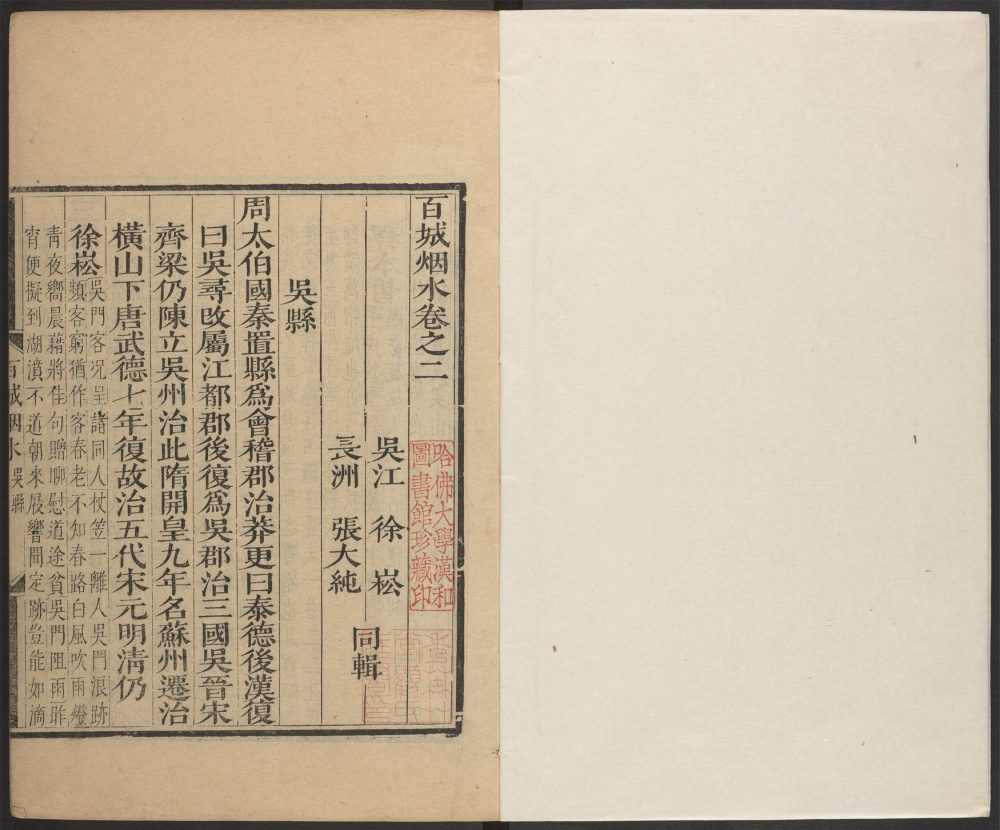 百城烟水卷之二
吳江 徐崧
長洲 張大純
同輯
哈佛大學漢和
圖書館珍藏印
吳縣
周太伯國秦置縣爲會稽郡治莽更曰泰德後漢復
曰吳尋改屬江都郡後復爲吳郡治三國吳晉宋
齊梁仍陳立吳州治此隋開皇九年名蘇州遷治
橫山下唐武德七年復故治五代宋元明清仍
徐崧
吳門客况呈諸同人杖笠一離人吳門浪跡
類客窮猶作客春老不知春路白風吹雨燈
青夜嚮晨藉將佳句贈聊慰道途貧吳門阻雨昨
宵便擬到湖濆不道朝來屐響聞定跡豈能如滴
百城烟水 吳縣